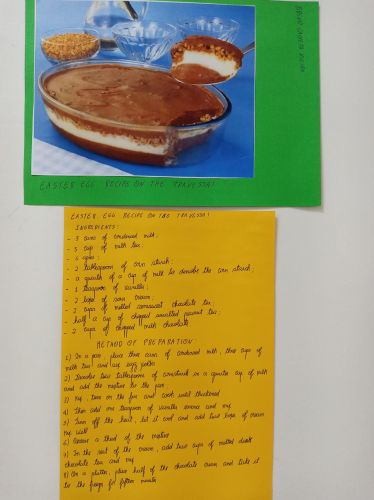 EASTER EGG RECIPE ON THE TRAVESSA!
EASTER EGG RECIPE ON THE TRAVESSA!
INGREDIENTS:
- 3 cans of condensed milk;
- 5 cup of milk tea;
- 6 gems;
- 2 tablespoon of corn starch;
- a quarter of a cup of milk to dissolve the corn starch;
- 1 teaspoon of vanilla;
- 2 boxes of sour cream;
- 2 cups of melted semisweet chocolate tea;
- half a cup of chopped unsalted peanut tea;
- 2 cups of chopped milk chocolate
METHOD OF PREPARATION:
1) In a pan, place three cans of condensed milk, three cups of
milk tea and six egg yolks
2) Dissolve two tablespoons of cornstarch in a quarter cup of milk
and add the mixture to the pan
3) Mix, turn on the fire and cook until thickened
4) Then add one teaspoon of vanilla essence and mix
5) Turn off the heat, let it cool and add two boxes of cream
mix well
6) Reserve a third of the mixture
7) In the rest of the cream, add two cups of melted dark
chocolate tea and mix
8) On a platter, place half of the chocolate cream and take it
to the freezer for fifteen minutes